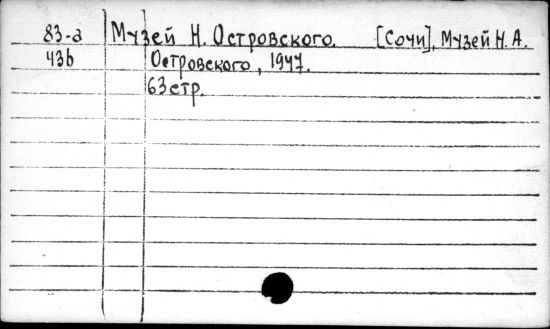 83-а Музей Н. Островского. [Сочи], Музей Н. А.
43b Островского, 1947.
63 стр.